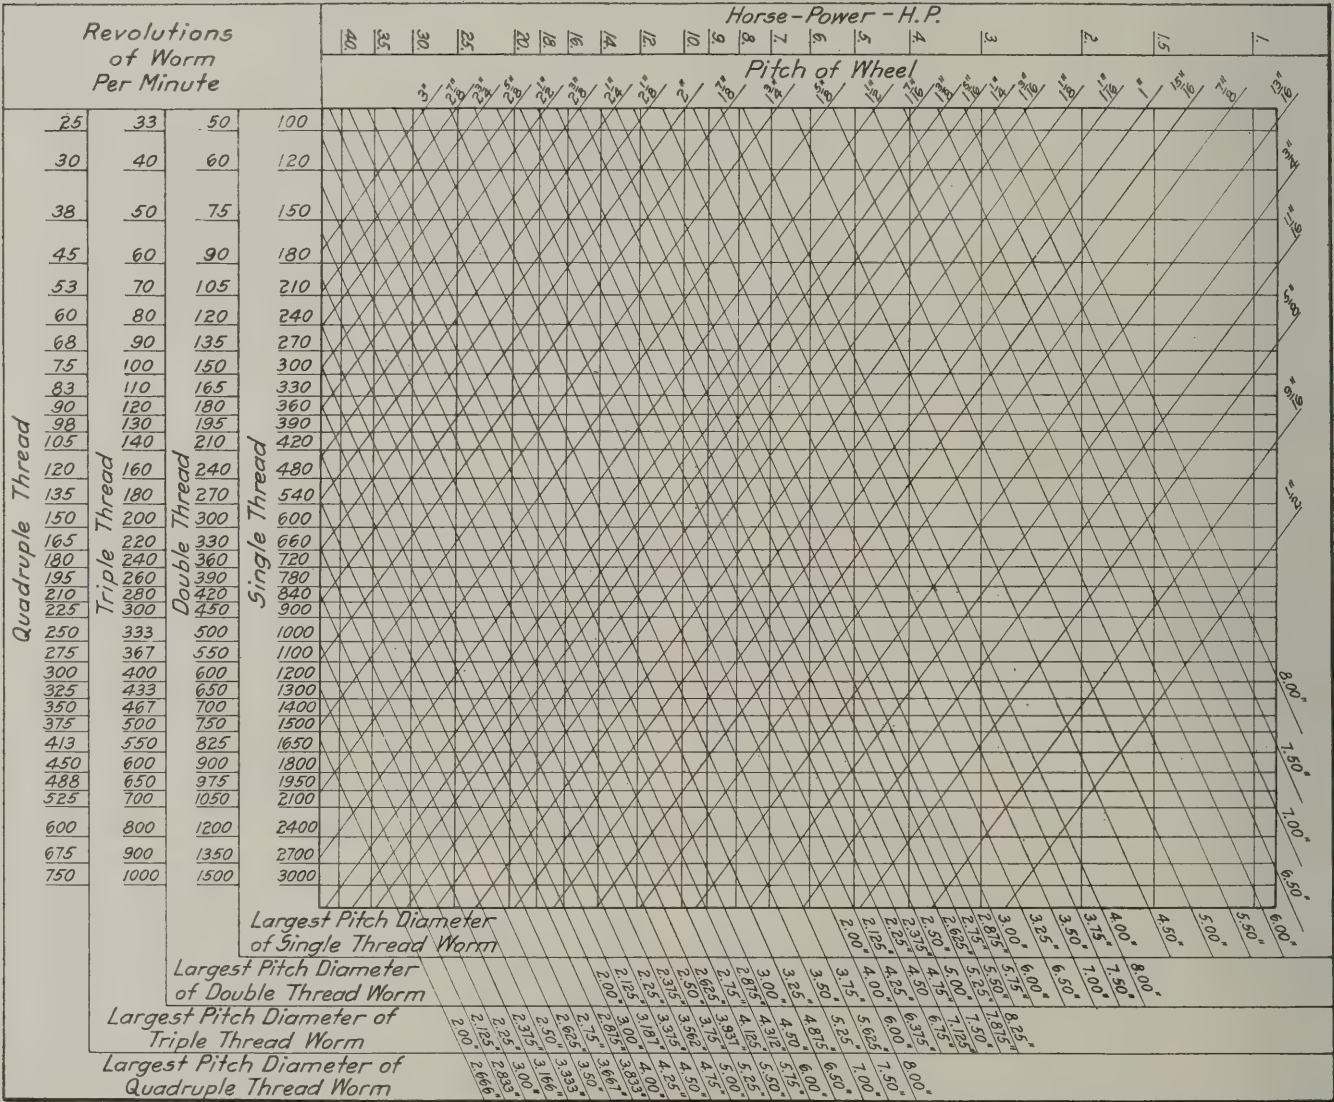 Revolutions
of Worm
Per Minute
Horse-Power-H.P.
40. 35. 30. 25. 20. 18. 16. 14. 12 10. 9. 8. 7. 6. 5. 4. 3. 2. 1.5 1.
Pitch of Wheel
3" 2 7/8" 2 3/4" 2 5/8" 2 1/2" 2 3/8" 2 1/4" 2 1/8" 2" 1 7/8" 1 3/4" 1 5/8" 1 1/2" 1 7/16" 1 3/8" 1 5/16" 1 1/4" 1 3/16" 1 1/8" 1 1/16" 1" 15/16" 7/8" 13/16"
3/4"
11/16"
5/8"
9/16"
1/2"
Quadruple Thread
Triple Thread
Double Thread
Single Thread
25 33 50 100
30 40 60 120
38 50 75 150
45 60 90 180
53 70 105 210
60 80 120 240
68 90 135 270
75 100 150 300
83 110 165 330
90 120 180 360
98 130 195 390
105 140 210 420
120 160 240 480
135 180 270 540
150 200 300 600
165 220 330 660
180 240 360 720
195 260 390 780
210 280 420 840
225 300 450 900
250 333 500 1000
275 367 550 1100
300 400 600 1200
325 433 650 1300
350 467 700 1400
375 500 750 1500
413 550 825 1650
450 600 900 1800
488 650 975 1950
525 700 1050 2100
600 800 1200 2400
675 900 1350 2700
750 1000 1500 3000
8.00"
7.50"
7.00"
6.50"
Largest Pitch Diameter
of Single Thread Worm
2.00" 2.125" 2.25" 2.375" 2.50" 2.625" 2.75" 2.875" 3.00" 3.25" 3.50" 3.75" 4.00" 4.50" 5.00" 5.50" 6.00"
Largest Pitch Diameter
of Double Thread Worm
2.00" 2.125" 2.25" 2.375" 2.50" 2.625" 2.75" 2.875" 3.00" 3.25" 3.50" 3.75" 4.00" 4.25" 4.50" 4.75" 5.00" 5.25" 5.50" 5.75" 6.00" 6.50" 7.00" 7.50" 8.00"
Largest Pitch Diameter of
Triple Thread Worm
2.00 2.125" 2.25" 2.375" 2.50" 2.625" 2.75" 2.875" 3.00" 3.187" 3.375" 3.562" 3.75" 3.937" 4.125" 4.312" 4.50" 4.875" 5.25" 5.625" 6.00" 6.375" 6.75" 7.125" 7.50" 7.875" 8.25"
Largest Pitch Diameter of
Quadruple Thread Worm
2.666" 2.833" 3.00" 3.166" 3.333" 3.50" 3.667" 3.833" 4.00" 4.25" 4.50" 4.75" 5.00" 5.25" 5.50" 5.75" 6.00" 6.50" 7.00" 7.50" 8.00"